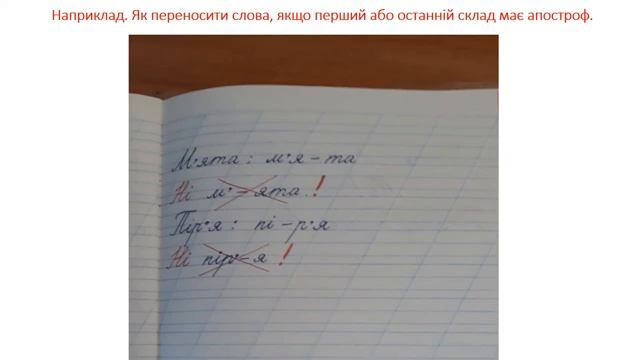 Наприклад. Як переносити слова, якщо перший або останній склад має апостроф.
М'ята : м'я – та
Ні м' – ята !
Пір'я : пі – р'я
Ні пір' – я !